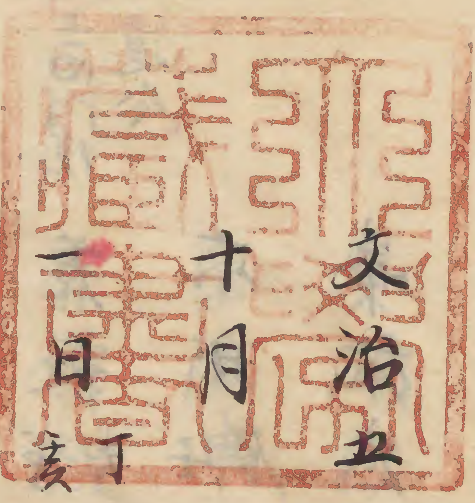 文治五
十月
一日 丁亥
藏書